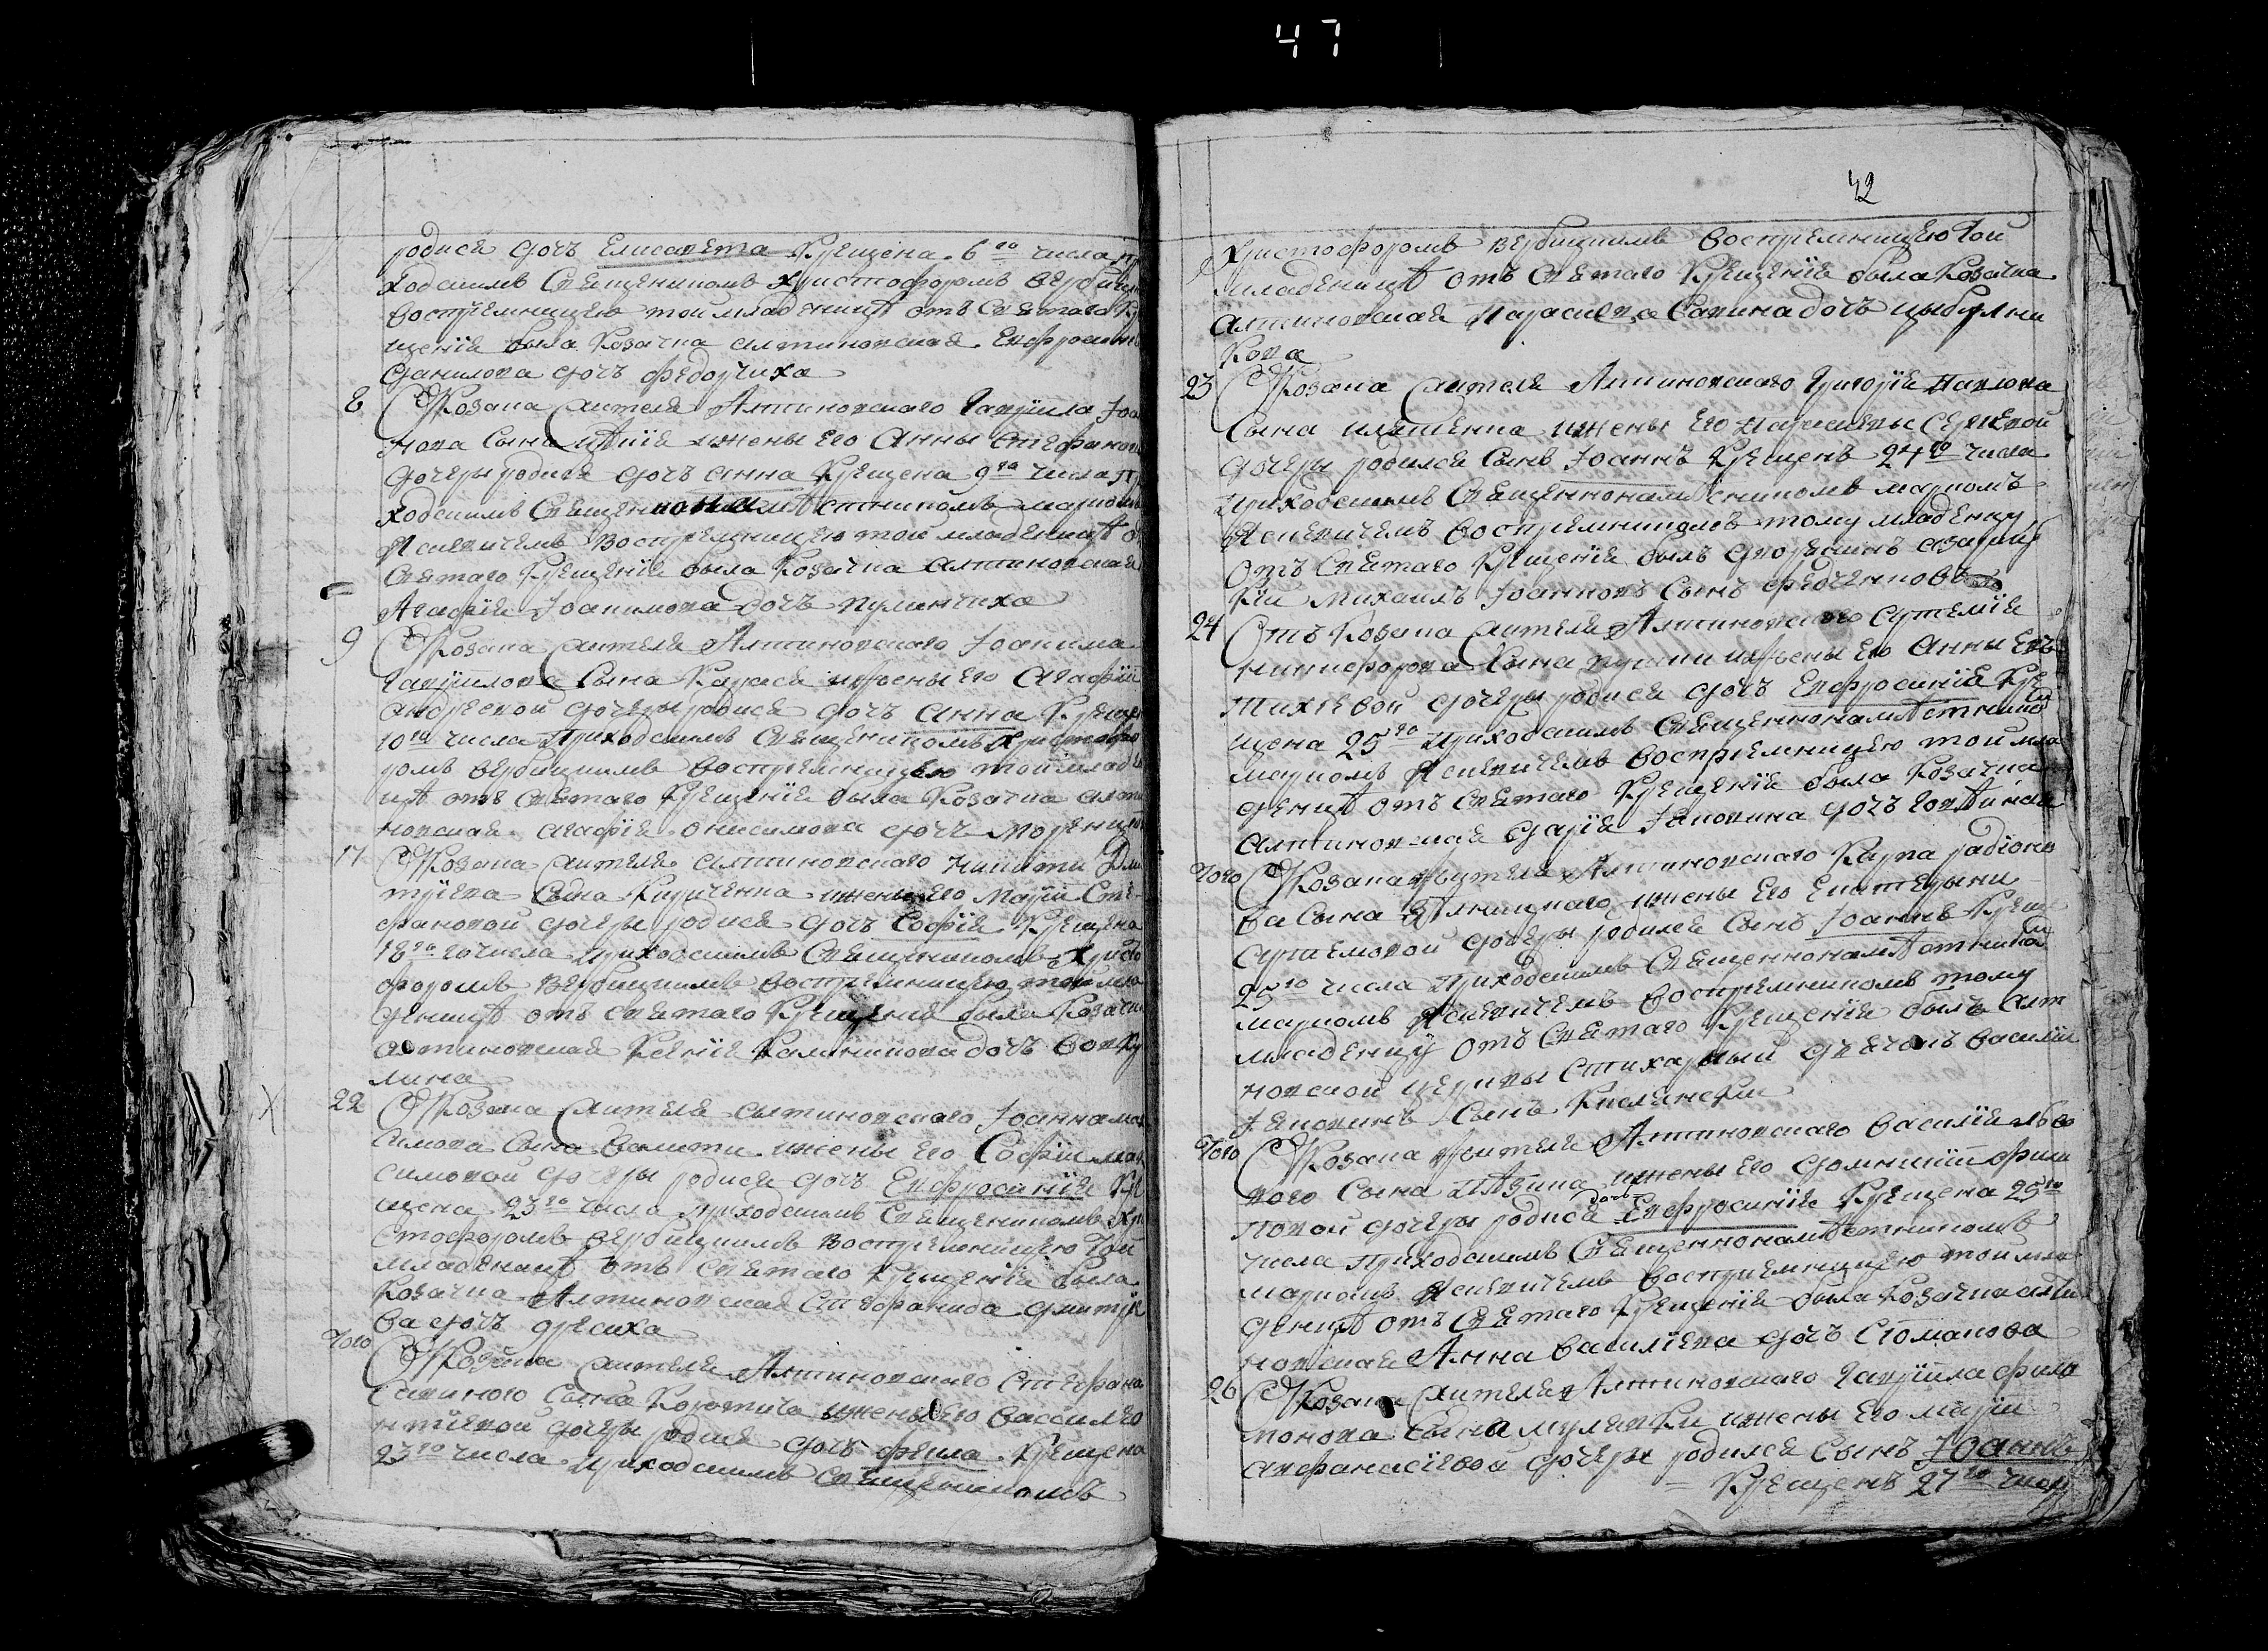 47
42
родися дочъ Елисавета Крещена 6го числа пр
ходскимъ Священникомъ Христофоромъ Вербиц
воспрiемницею той младеницѣ отъ Святаго Кр
щенiя была Козачка алтиновская Евфросинi
данилова дочъ федорчиха
8 Ӱ Козака жителя Алтиновскаго Гаврiила Iоа
нова Сына жены Его Анны Стефанов
дочеры родися дочъ анна Крещена 9го числа пр
ходскимъ Священнонамѣстникомъ маркомъ
Ясневичемъ Воспрiемницею той младеницѣ о
Святаго Крещенiя была Козачка алтиновская
Агафiя Iоакимова дочъ
9 Ӱ Козака жителя Алтиновскаго Iоакима
Гаврiилова Сына Карася жены Его Агафiи
андреевой дочеры родися дочъ анна Креще
10го числа Приходскимъ Священникомъ Христофо
ромъ вербицкимъ воспрiемницею той млад
цѣ отъ Святаго Крещенiя была Козачка алти
новская агафiя онисимова дочъ
17 Ӱ Козака жителя алтиновскаго Никиты Дми
трiева Сына Кириченка жены Его Марiи Сте
фановой дочеры родися дочъ Софiя Крещена
18го числа приходскимъ Священникомъ Христо
форомъ Вербицкимъ воспрiемницею той мла
деницѣ отъ Святаго Крещенiя была Козачка
алтиновская Ксенiя дочъ Вовку
лина
22 Ӱ Козака жителя алтиновскаго Iоанна мак
симова Сына жены Его Софiи мак
симовой дочеры родися дочъ Евфросинiя Кре
щена 23го числа приходскимъ Священникомъ Хри
стофоромъ вербицкимъ Воспрiемницею той
младеницѣ отъ Святаго Крещенiя была
Козачка Алтиновская Стефанида дмитрiе
ва дочъ
того Ӱ Козака жителя Алтиновскаго Стефана
Савиного Сына жены Его
дочеры родися дочъ фекла Крещена
23го числа приходскимъ Священникомъ
Христофоромъ вербицкимъ воспрiемницею той
младеницѣ отъ Святаго Крещенiя была Козачка
алтиновская Параскева Савина дочъ цыбулни
кова
23 Ӱ Козака жителя Алтиновскаго Григорiя павлова
Сына иляшенка жены Его Параскевы Сергѣевой
дочеры родился Сынъ Iоаннъ Крещенъ 24го числа
приходскимъ Священнонамѣсникомъ маркомъ
Ясневичемъ воспрiемникомъ тому младенцу
отъ Святаго Крещенiя былъ дворянинъ
Михаилъ Iоанновъ Сынъ федченковъ
24 Отъ Козака жителя Алтиновскаго Сутемiя
никифорова Сына жены Его Анны Ев
тихiевой дочеры родися дочъ Евфросинiя Кре
щена 25го приходскимъ Священнонамѣстником
маркомъ Ясневичемъ воспрiемницею той мла
деницѣ отъ Святаго Крещенiя была Козачка
алтиновская дарiя Iаковина дочъ
того Ӱ Козака жителя Алтиновскаго Карпа радiоно
ва Сына жены Его Екатерыны
дочеры родился Сынъ Iоаннъ Креще
25го числа приходскимъ Священнонамѣстником
маркомъ Ясневичемъ воспрiемникомъ тому
младенцу отъ Святаго Крещенiя былъ алти
новской церквы Стихарный дьячокъ василiи
Iаковинъ Сынъ
того Ӱ Козака жителя Алтиновскаго василiя лео
ного Сына жены Его домникiи фили
повой дочеры родися дочъ Евфросинiя Крещена 25го
числа приходскимъ Священнонамѣстникомъ
маркомъ Ясневичемъ воспрiемницею той мла
деницѣ отъ Святаго Крещенiя была Козачка алти
новская Анна василiева дочъ
26 Ӱ Козака жителя Алтиновскаго Гаврiила фили
монова сына мулявки жены Его марiи
афанасiевой дочеры родился Сынъ Iоаннъ
Крещенъ 27го числа